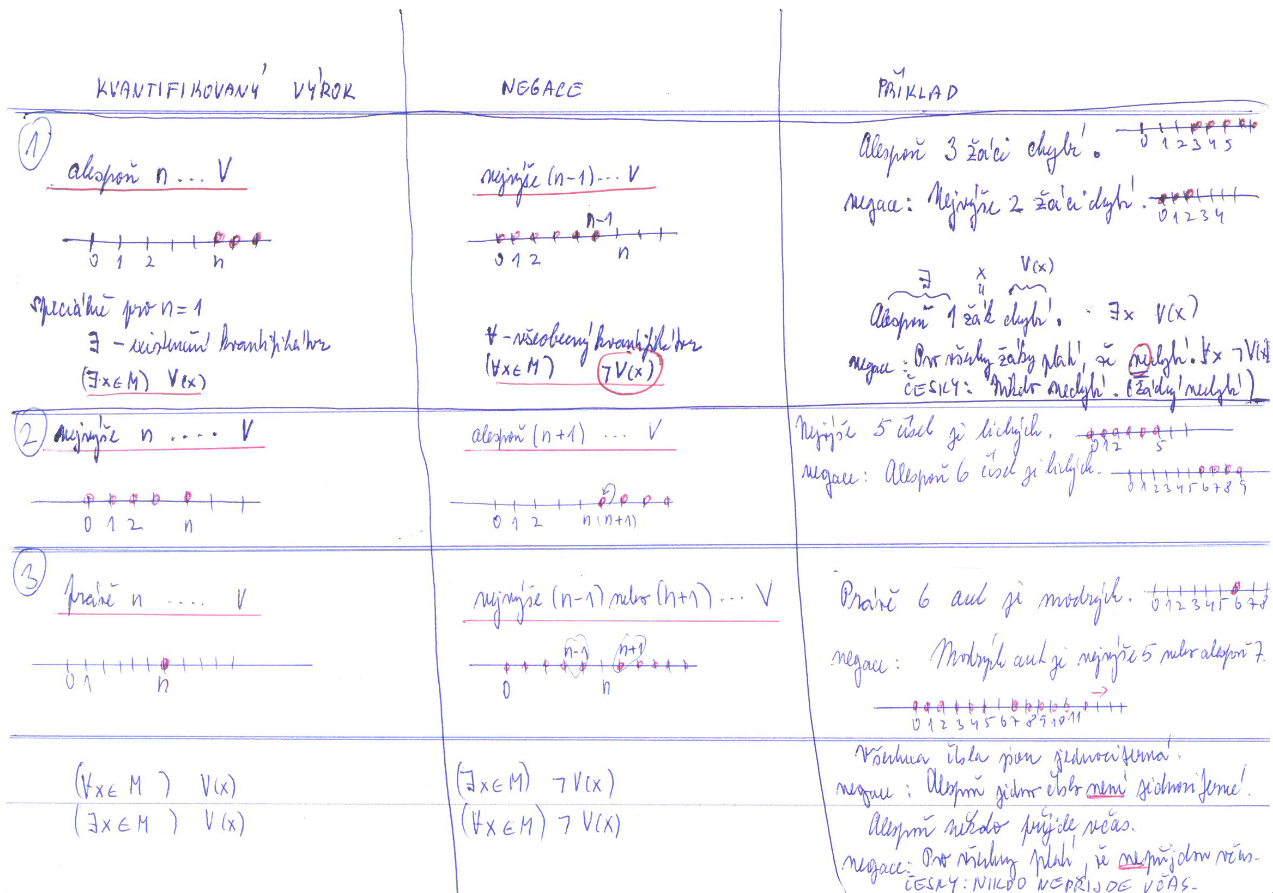 KVANTIFIKOVANÝ VÝROK
NEGACE
PŘÍKLAD
1
alespoň n ... V
0 1 2 n
speciálně pro n=1
∃ - existenční kvantifikátor
(∃x∈M) V(x)
nejvýše (n-1)... V
n-1
0 1 2 n
∀ - všeobecný kvantifikátor
(∀x∈M) ¬V(x)
Alespoň 3 žáci chybí.
0 1 2 3 4 5
negace: Nejvýše 2 žáci chybí.
0 1 2 3 4
∃ x V(x)
Alespoň 1 žák chybí. - ∃x V(x)
negace: Pro všechny žáky platí, že nechybí. ∀x ¬V(x)
ČESKY: Nikdo nechybí. (Žádný nechybí)
2
nejvýše n .... V
0 1 2 n
alespoň (n+1) ... V
0 1 2 n (n+1)
Nejvýše 5 čísel je lichých.
0 1 2 5
negace: Alespoň 6 čísel je lichých.
0 1 2 3 4 5 6 7 8 9
3
právě n .... V
0 1 n
nejvýše (n-1) nebo (n+1) ... V
n-1 n+1
0 n
Právě 6 aut je modrých.
0 1 2 3 4 5 6 7 8
negace: Modrých aut je nejvýše 5 nebo alespoň 7.
0 1 2 3 4 5 6 7 8 9 10 11
(∀x∈M) V(x)
(∃x∈M) V(x)
(∃x∈M) ¬V(x)
(∀x∈M) ¬V(x)
Všechna čísla jsou jednociferná.
negace: Alespoň jedno číslo není jednociferné.
Alespoň někdo přijde včas.
negace: Pro všechny platí, že nepřijdou včas.
ČESKY: NIKDO NEPŘIJDE VČAS.